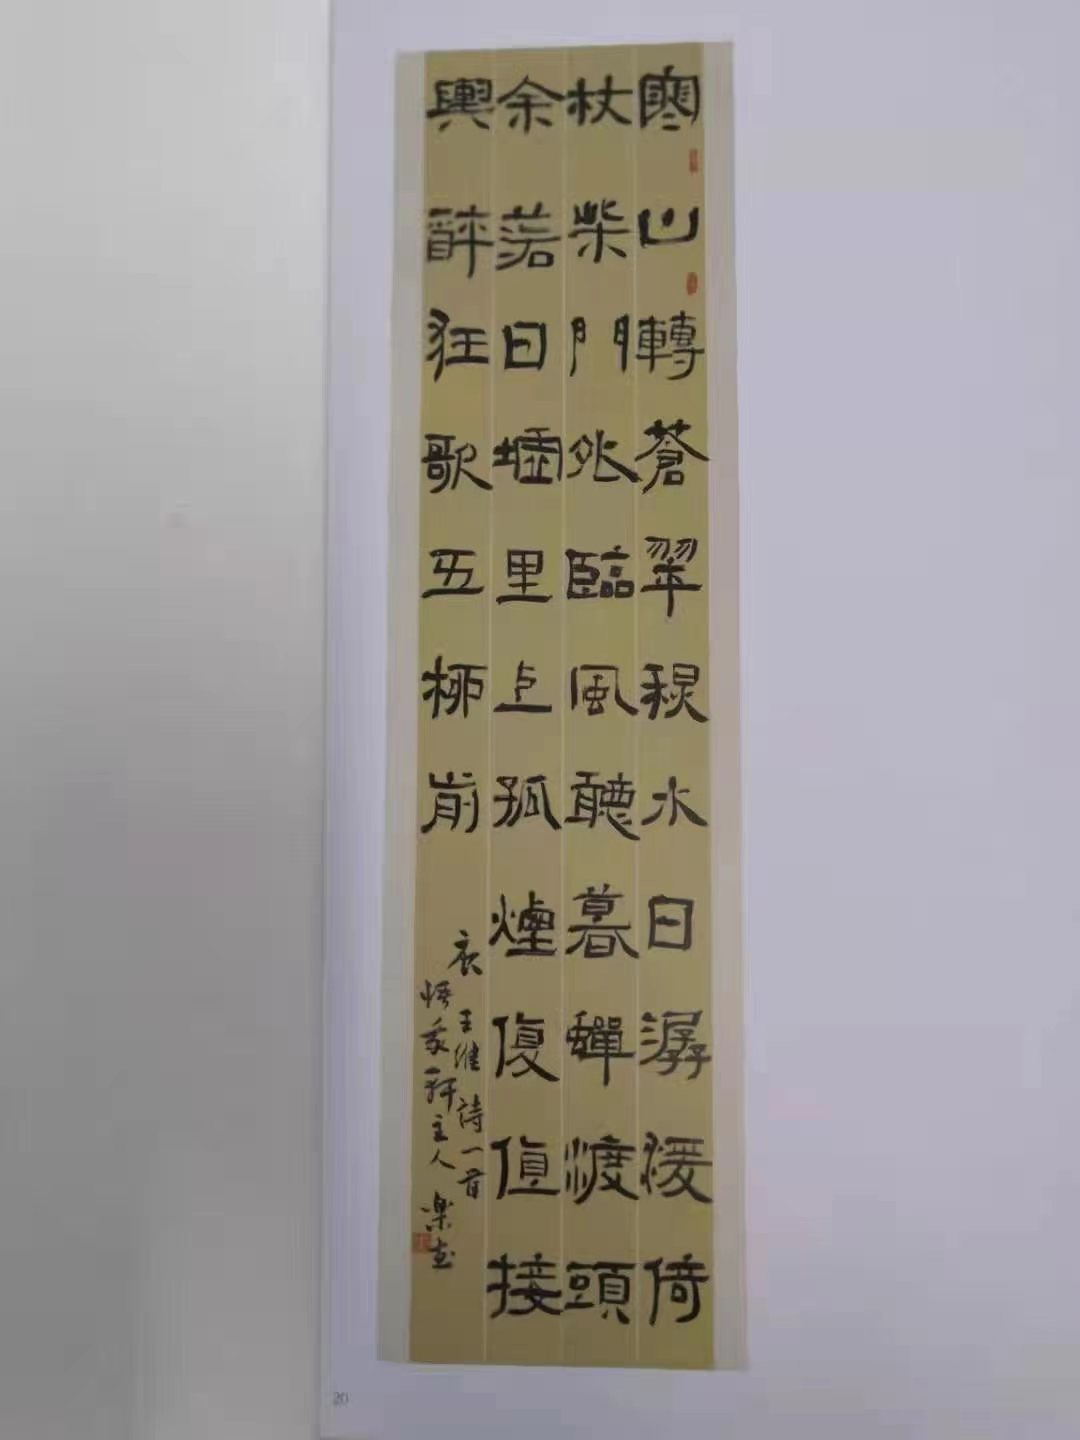 寒山轉蒼翠秋水日潺湲倚
杖柴門外臨風聽暮蟬渡頭
余落日墟里上孤煙復值接
輿醉狂歌五柳前
王維詩一首
主人
20